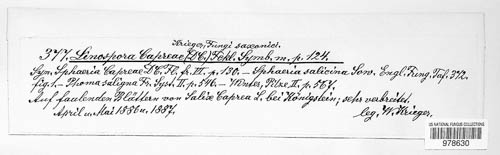 Krieger, Fungi saxonici.
377. Linospora Capreae (DC.) Fckl. Symb. m. p. 124.
Syn. Sphaeria Capreae DC. Fl. fr. VI. p. 130. — Sphaeria salicina Sow. Engl. Fung. Taf. 372.
fig. 1. — Phoma saligna Fr. Syst. II. p. 546. — Winter, Pilze II. p. 567.
Auf faulenden Blättern von Salix Caprea L. bei Königstein; sehr verbreitet.
April u. Mai 1886 u. 1887.
leg. W. Krieger.
US NATIONAL FUNGUS COLLECTIONS
978630